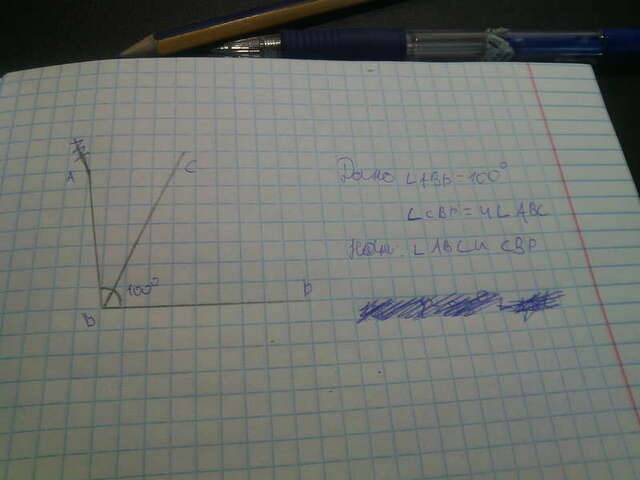 A
C
100°
B
D
Дано ∠ABD=100°
∠CBD=4∠ABC
Найти: ∠ABC и CBD